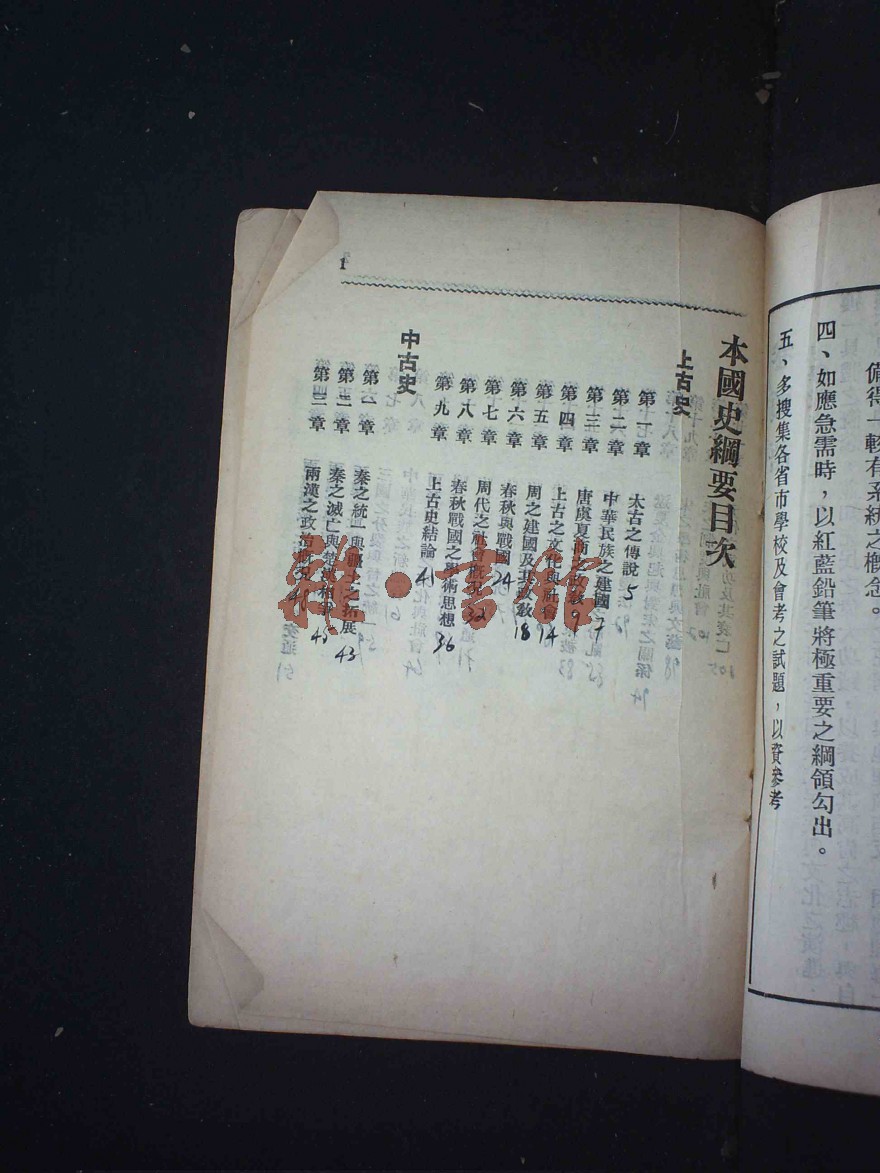 備得一較有系統之概念。
四、如應急需時，以紅藍鉛筆將極重要之綱領勾出。
五、多搜集各省市學校及會考之試題，以資參考
本國史綱要目次
上古史
第一章 太古之傳說 5
第二章 中華民族之建國 7
第三章 唐虞夏商之政教 9
第四章 上古之文化與社會 14
第五章 周之建國及其政教 18
第六章 春秋與戰國 24
第七章 周代之社會概况 32
第八章 春秋戰國之學術思想 36
第九章 上古史結論 41
中古史
第一章 秦之統一與疆土之拓展 43
第二章 秦之滅亡與楚漢相爭 45
第三章 兩漢之政治概况 48
1
雜·書館